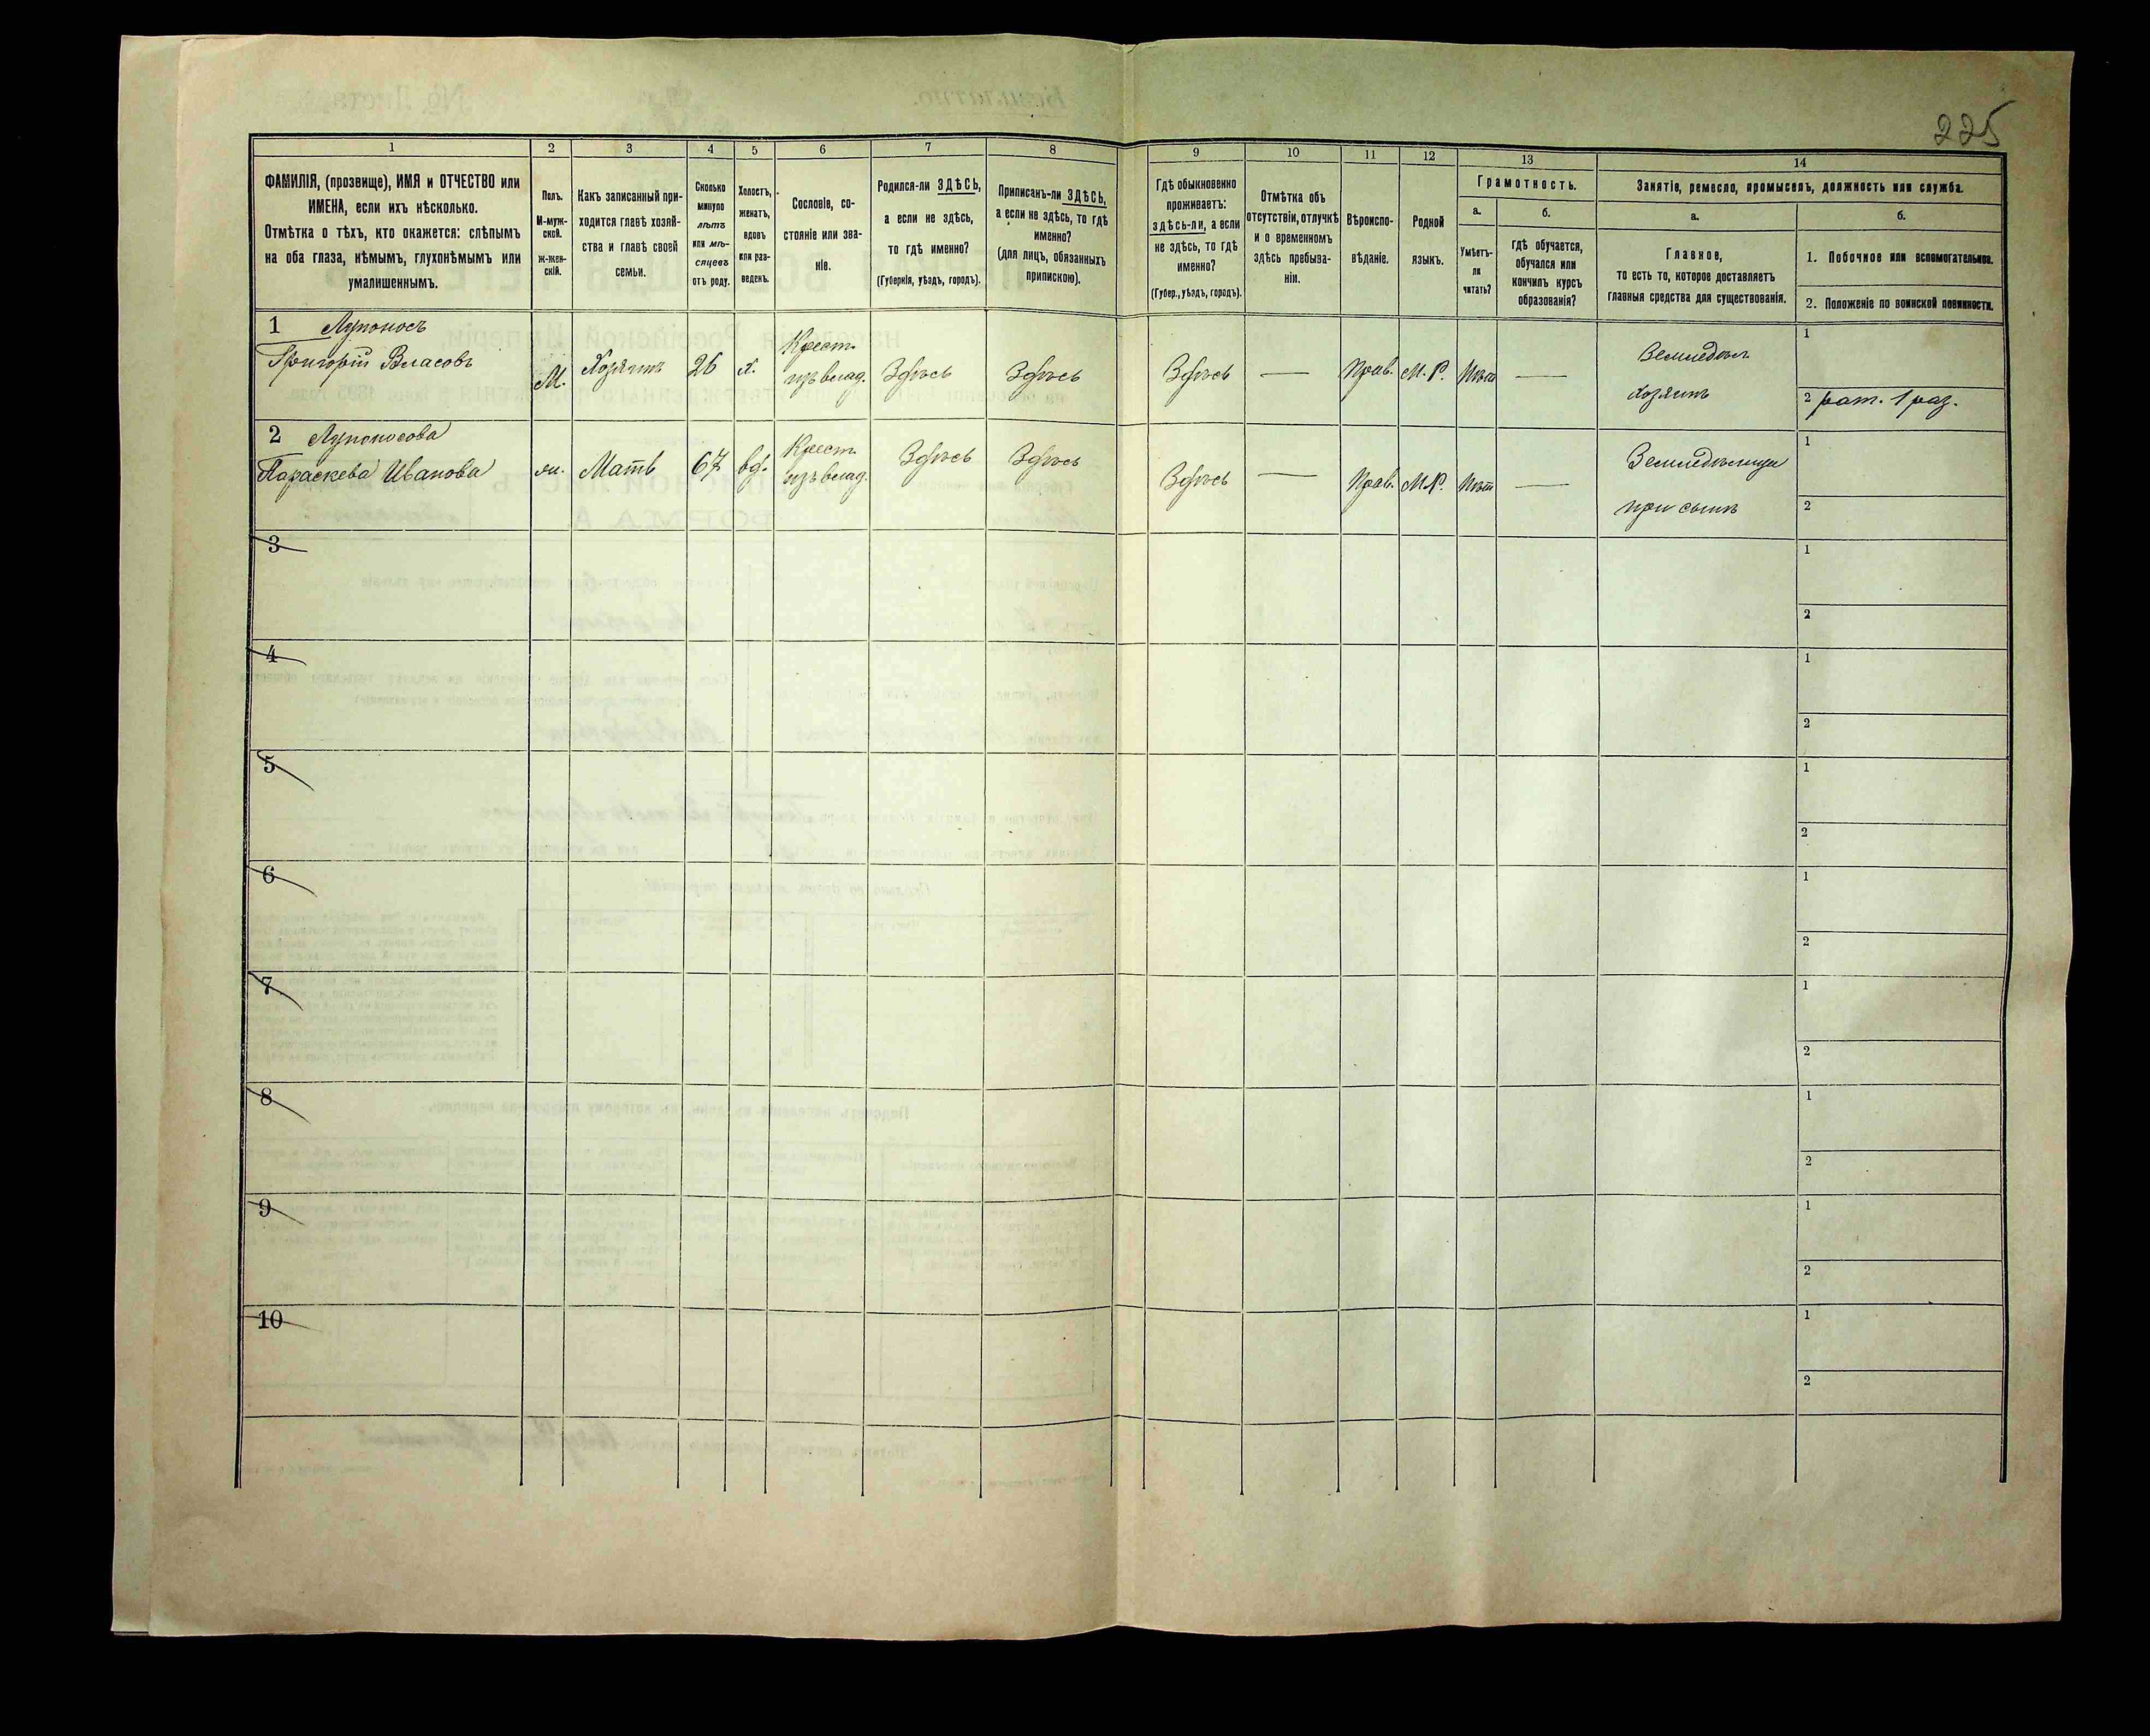 225
1 2 3 4 5 6 7 8 9 10 11 12 13 14
ФАМИЛІЯ, (прозвище), ИМЯ и ОТЧЕСТВО или
ИМЕНА, если ихъ нѣсколько.
Отмѣтка о тѣхъ, кто окажется: слѣпымъ
на оба глаза, нѣмымъ, глухонѣмымъ или
умалишеннымъ.
Полъ.
М-муж-
ской.
ж-жен-
скій.
Какъ записанный при-
ходится главѣ хозяй-
ства и главѣ своей
семьи.
Сколько
минуло
лѣтъ
или мѣ-
сяцевъ
отъ роду.
Холостъ,
женатъ,
вдовъ
или раз-
веденъ.
Сословіе, со-
стояніе или зва-
ніе.
Родился-ли ЗДѢСЬ,
а если не здѣсь,
то гдѣ именно?
(Губернія, уѣздъ, городъ).
Приписанъ-ли ЗДѢСЬ,
а если не здѣсь, то гдѣ
именно?
(для лицъ, обязанныхъ
припискою).
Гдѣ обыкновенно
проживаетъ:
здѣсь-ли, а если
не здѣсь, то гдѣ
именно?
(Губер., уѣздъ, городъ).
Отмѣтка объ
отсутствіи, отлучкѣ
и о временномъ
здѣсь пребыва-
ніи.
Вѣроиспо-
вѣданіе.
Родной
языкъ.
Грамотность.
а.
Умѣетъ-
ли
читать?
б.
гдѣ обучается,
обучался или
кончилъ курсъ
образованія?
Занятіе, ремесло, промыселъ, должность или служба.
а.
Главное,
то есть то, которое доставляетъ
главныя средства для существованія.
б.
1. Побочное или вспомогательное.
2. Положеніе по воинской повинности.
1 Лупоносъ
Григорій Власовъ
М. Хозяинъ 26 х. Крест.
изъ влад. Здѣсь Здѣсь Здѣсь — Прав. М.Р. Нѣтъ — Земледѣл.
хозяинъ
1
2 рат. 1 раз.
2 Лупоносова
Параскева Иванова
ж. Мать 67 вд. Крест.
изъ влад. Здѣсь Здѣсь Здѣсь — Прав. М.Р. Нѣтъ — Земледѣлица
при сынѣ
1
2
3
1
2
4
1
2
5
1
2
6
1
2
7
1
2
8
1
2
9
1
2
10
1
2